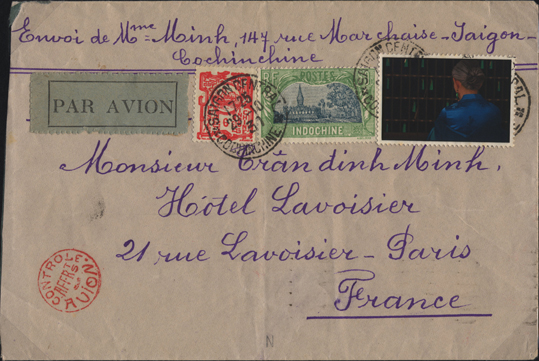 Envoi de Mme Minh, 147 rue Marchaise-Saigon-
Cochinchine
PAR AVION
POSTES
INDOCHINE
SAIGON CENTRAL
COCHINCHINE
Monsieur Trândinh Minh.
Hôtel Lavoisier
21 rue Lavoisier-Paris
France
CONTROLE
AVION
N